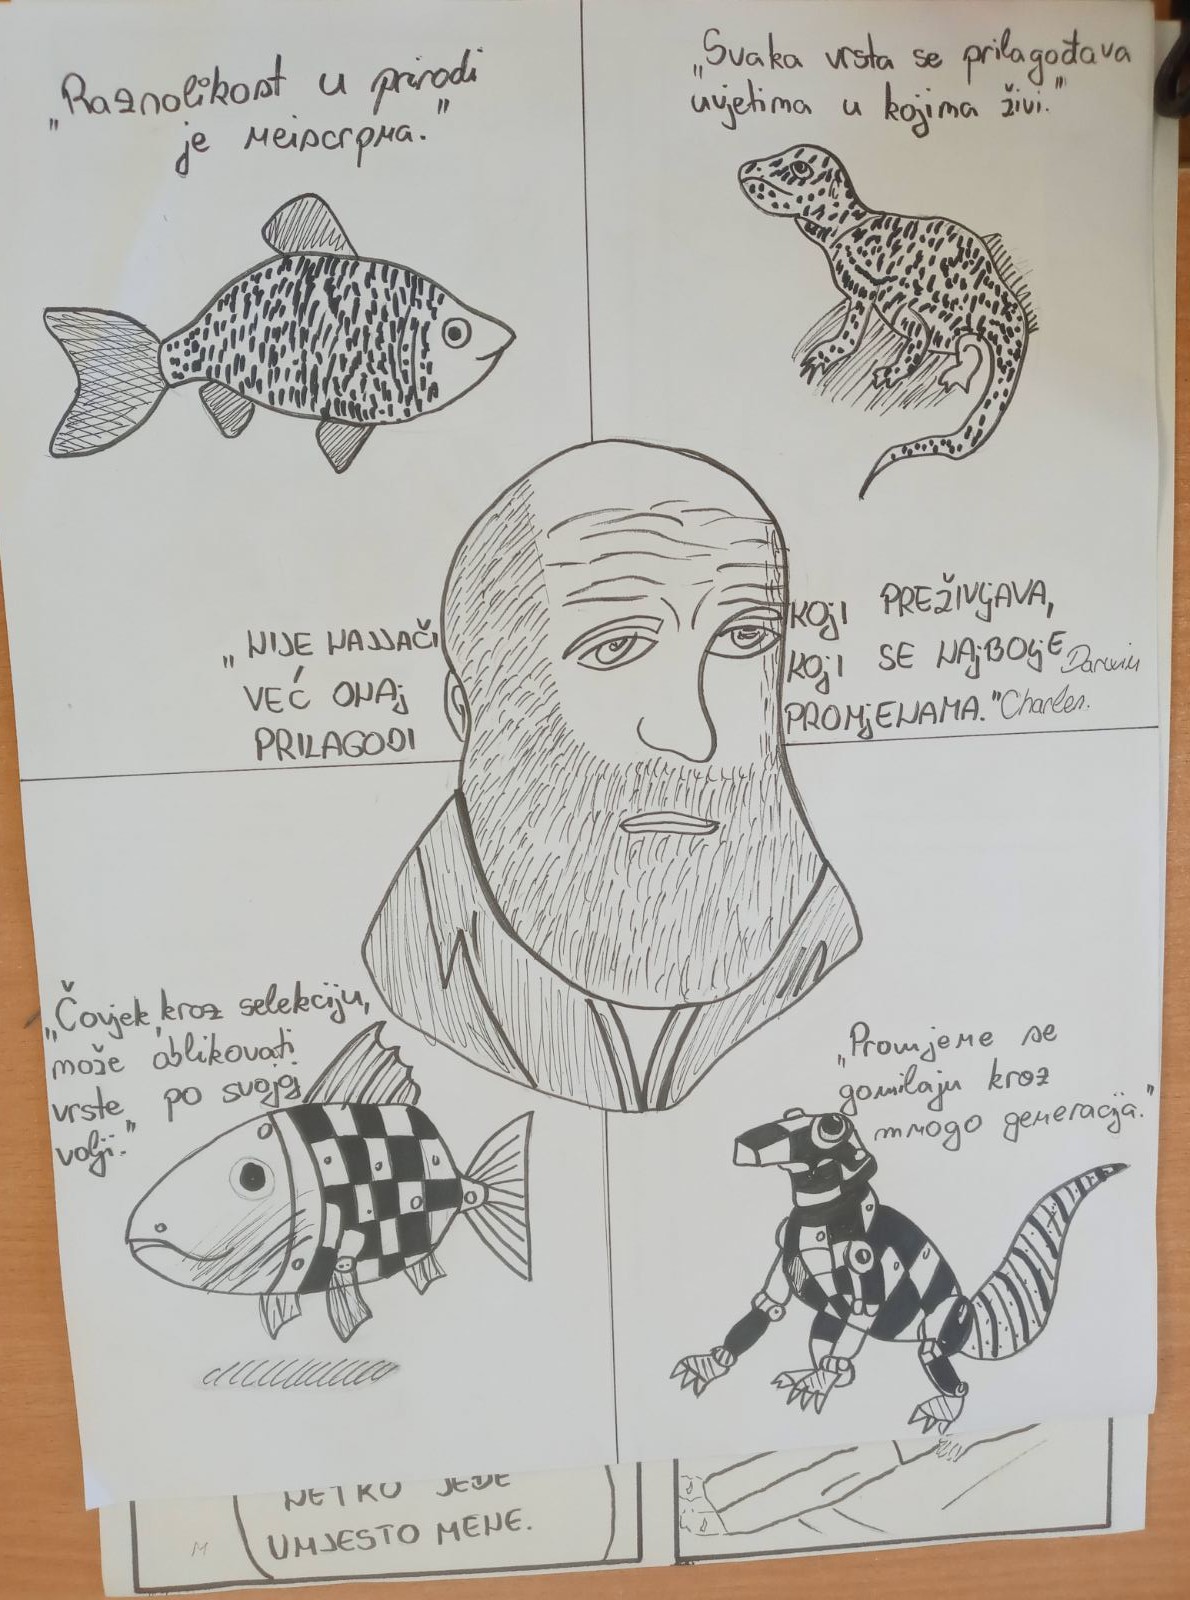 „Raznolikost u prirodi
je neiscrpna.”
„Svaka vrsta se prilagođava
uvjetima u kojima živi.”
„NIJE NAJJAČI KOJI PREŽIVLJAVA,
VEĆ ONAJ KOJI SE NAJBOLJE
PRILAGODI PROMJENAMA.” Charles Darwin
„Čovjek, kroz selekciju,
može oblikovati
vrste po svojoj
volji.”
„Promjene se
gomilaju kroz
mnogo generacija.”
NETKO JEDE
UMJESTO MENE.